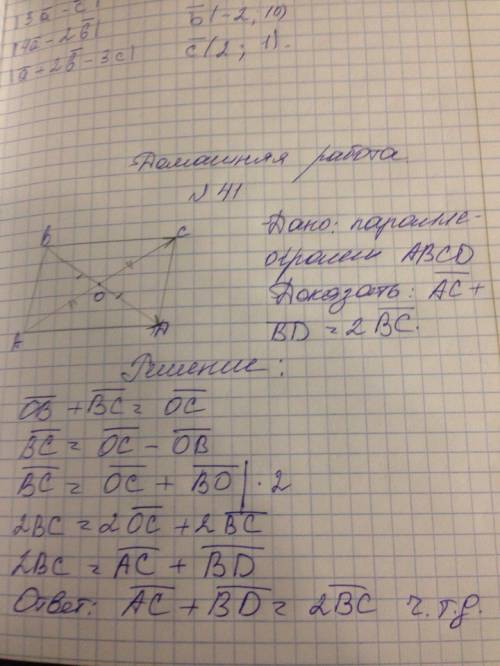 |3a̅ - c̅|
|4a̅ - 2b̅|
|a̅ + 2b̅ - 3c̅|
b̅ (-2, 10)
c̅ (2 ; 1).
Домашняя работа.
№ 41
B
C
O
A
D
Дано: паралле-
лограмм ABCD
Доказать: A̅C̅ +
B̅D̅ = 2B̅C̅.
Решение:
O̅B̅ + B̅C̅ = O̅C̅
B̅C̅ = O̅C̅ - O̅B̅
B̅C̅ = O̅C̅ + B̅O̅ | · 2
2BC = 2O̅C̅ + 2B̅C̅
2BC = A̅C̅ + B̅D̅
Ответ: A̅C̅ + B̅D̅ = 2B̅C̅ ч.т.д.